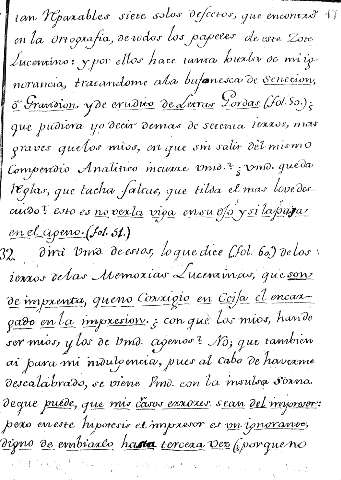 tan reparables siete solos defectos, que encontró 47
en la ortografia, de todos los papeles de este Zoe
Lucentino: y por ellos hace tanta burla de mi ig-
norancia, tratandome a la bufonesca de
ò y de erudito de Letras Gordas (fol. 50.) ¿
que pudiera yo decir demas de setenta ierros, mas
graves que los mios, en que sin salir dèl mismo
Compendio Analitico incurre Vmd.? ¿ Vmd. que da
Reglas, que tacha faltas, que tilda el mas leve des-
cuido? esto es no ver la viga en su ojo y si la paja
en el ageno. (fol. 51.)
32. dirà Vmd. de estos, lo que dice (fol. 60.) de los
ierros de las Memorias Lucentinas, que son
de imprenta, que no Corrigio en Ecija el encar-
gado en la impresion. ¿ con què los mios, han de
ser mios, y los de Vmd. agenos? No; que tambien
ai para mi indulgencia, pues al cabo de haverme
descalabrado, se viene Vmd. con la insulsa sorna
de que puede, que mis casos errores sean del impresor:
pero en este hipotesis el impresor es un ignorante,
digno de embiarlo hasta tercera vez (¿ porque no